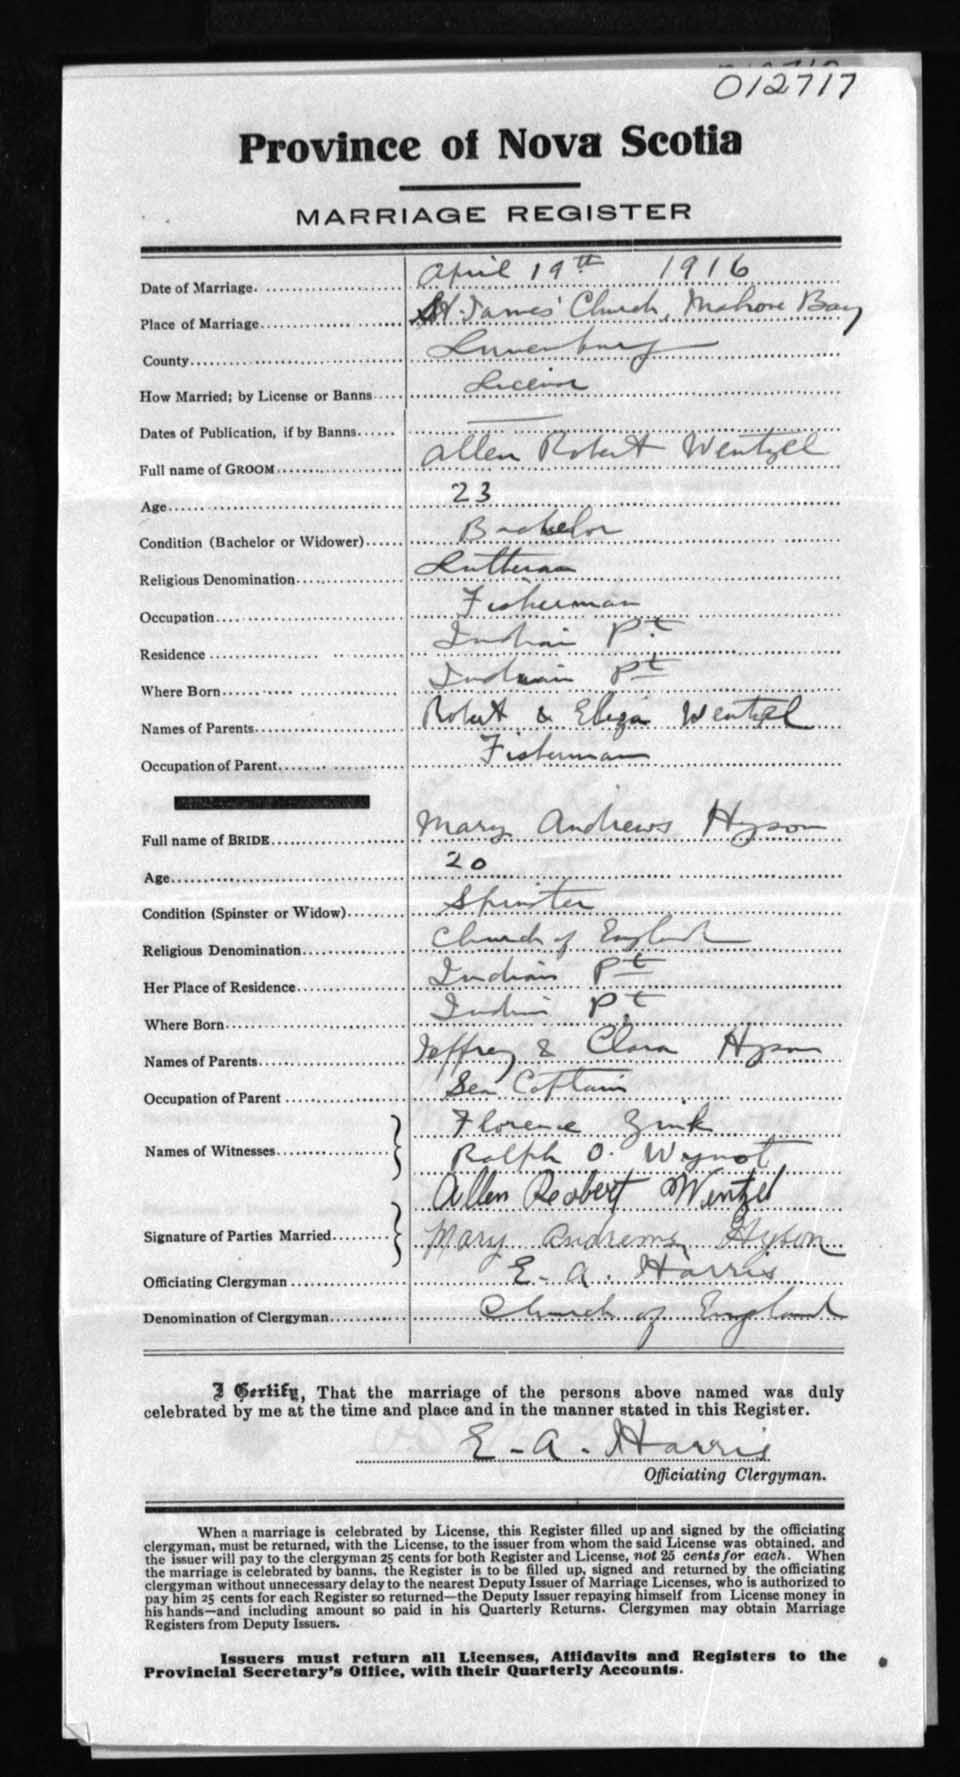 012717
Province of Nova Scotia
MARRIAGE REGISTER
Date of Marriage. April 19th 1916
Place of Marriage St. James' Church, Mahone Bay
County Lunenburg
How Married; by License or Banns License
Dates of Publication, if by Banns —
Full name of GROOM Allen Robert Wentzel
Age 23
Condition (Bachelor or Widower) Bachelor
Religious Denomination Lutheran
Occupation Fisherman
Residence Indian Pt.
Where Born Indian Pt
Names of Parents Robert & Eliza Wentzel
Occupation of Parent Fisherman
Full name of BRIDE Mary Andrews Hyson
Age 20
Condition (Spinster or Widow) Spinster
Religious Denomination Church of England
Her Place of Residence Indian Pt
Where Born Indian Pt
Names of Parents Jeffrey & Clara Hyson
Occupation of Parent Sea Captain
Names of Witnesses } Florence Zink
Ralph O. Wynot
Signature of Parties Married } Allen Reobert Wentzel
Mary Andrews Hyson
Officiating Clergyman E. A. Harris
Denomination of Clergyman Church of England
I Certify, That the marriage of the persons above named was duly
celebrated by me at the time and place and in the manner stated in this Register.
E. A. Harris
Officiating Clergyman.
When a marriage is celebrated by License, this Register filled up and signed by the officiating
clergyman, must be returned, with the License, to the issuer from whom the said License was obtained, and
the issuer will pay to the clergyman 25 cents for both Register and License, not 25 cents for each. When
the marriage is celebrated by banns, the Register is to be filled up, signed and returned by the officiating
clergyman without unnecessary delay to the nearest Deputy Issuer of Marriage Licenses, who is authorized to
pay him 25 cents for each Register so returned—the Deputy Issuer repaying himself from License money in
his hands—and including amount so paid in his Quarterly Returns. Clergymen may obtain Marriage
Registers from Deputy Issuers.
Issuers must return all Licenses, Affidavits and Registers to the
Provincial Secretary's Office, with their Quarterly Accounts.